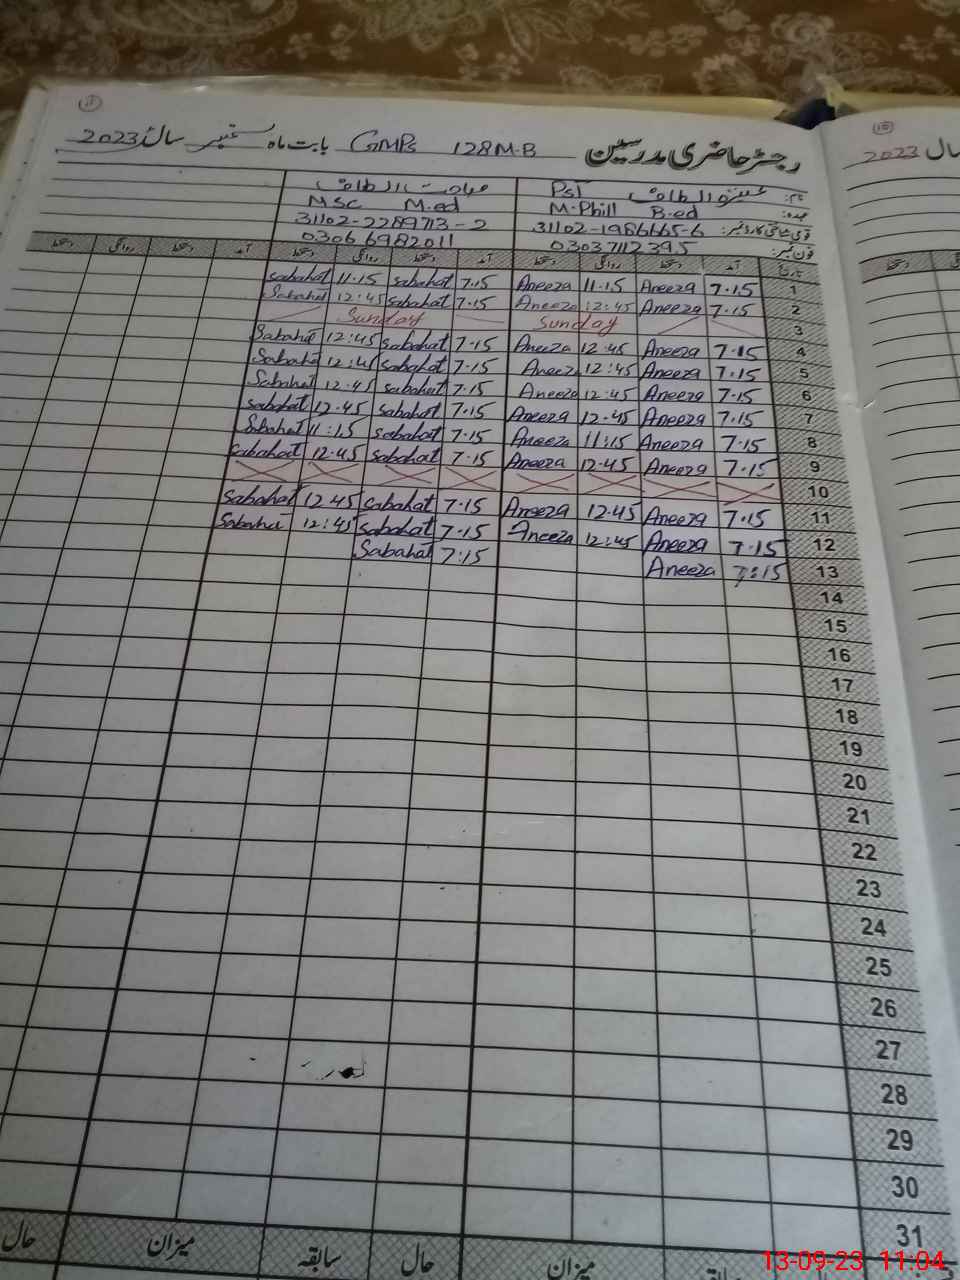 11
رجسٹر حاضری مدرسین GMPs 128 M.B بابت ماہ ستمبر سال 2023
نام: عنیزہ الطاف PST صباحت الطاف
عہدہ: M.Phill B.ed MSC M.ed
قومی شناختی کارڈ نمبر: 31102-1986665-6 31102-2289713-2
فون نمبر: 03037112395 03066982011
تاریخ آمد دستخط روانگی دستخط آمد دستخط روانگی دستخط آمد دستخط روانگی دستخط
1 7.15 Aneeza 11.15 Aneeza 7.15 sabahat 11.15 sabahat
2 7.15 Aneeza 12:45 Aneeza 7.15 sabahat 12:45 Sabahat
3 Sunday Sunday
4 7.15 Aneeza 12.45 Aneeza 7.15 sabahat 12:45 Sabahat
5 7.15 Aneeza 12:45 Aneeza 7.15 sabahat 12:45 Sabahat
6 7.15 Aneeza 12:45 Aneeza 7.15 sabahat 12.45 Sabahat
7 7.15 Aneeza 12.45 Aneeza 7.15 sabahat 12.45 sabahat
8 7.15 Aneeza 11:15 Aneeza 7.15 sabahat 11:15 Sabahat
9 7.15 Aneeza 12.45 Aneeza 7.15 sabahat 12.45 sabahat
10
11 7.15 Aneeza 12.45 Aneeza 7.15 sabahat 12.45 sabahat
12 7.15 Aneeza 12:45 Aneeza 7.15 sabahat 12:45 Sabahat
13 7:15 Aneeza 7:15 Sabahat
14
15
16
17
18
19
20
21
22
23
24
25
26
27
28
29
30
31
سابقہ میزان حال سابقہ میزان حال
10
سال 2023
دستخط
13-09-23 11:04